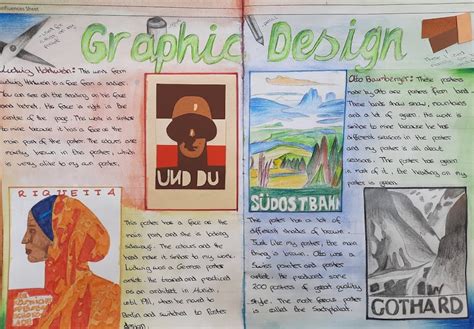 Graphic Design
Ludwig Hohlwein: This work from
Ludwig Hohlwein is a face from a soldier.
You can see all the shading on the face
and helmet. His face is right in the
centre of the page. This work is similar
to mine because it has a face as the
main part of the poster. The colours are
mainly brown in the poster, which
is very alike to my own poster.
UND DU
RIQUETTA
This poster has a face as the
main part, and she is looking
sideways. The colours and the
head make it similar to my work.
Ludwig was a German poster
artist. He trained and practiced
as an architect in Munich
until 1911, when he moved to
Berlin and switched to Poster
design.
Otto Baumberger: These posters
made by Otto are posters from
These both show snow, mountains
and a lot of green. His work is
similar to mine because he has
different seasons in the poster
and my poster is all about
seasons. The poster has green
in most of it, the heading on my
poster is green.
SÜDOSTBAHN
This poster has a lot of
different shades of brown.
Just like my poster, the main
thing is brown. Otto was a
Swiss painter and poster
artist. He produced some
200 posters of great quality
Style. The most famous poster
is called the
GOTHARD